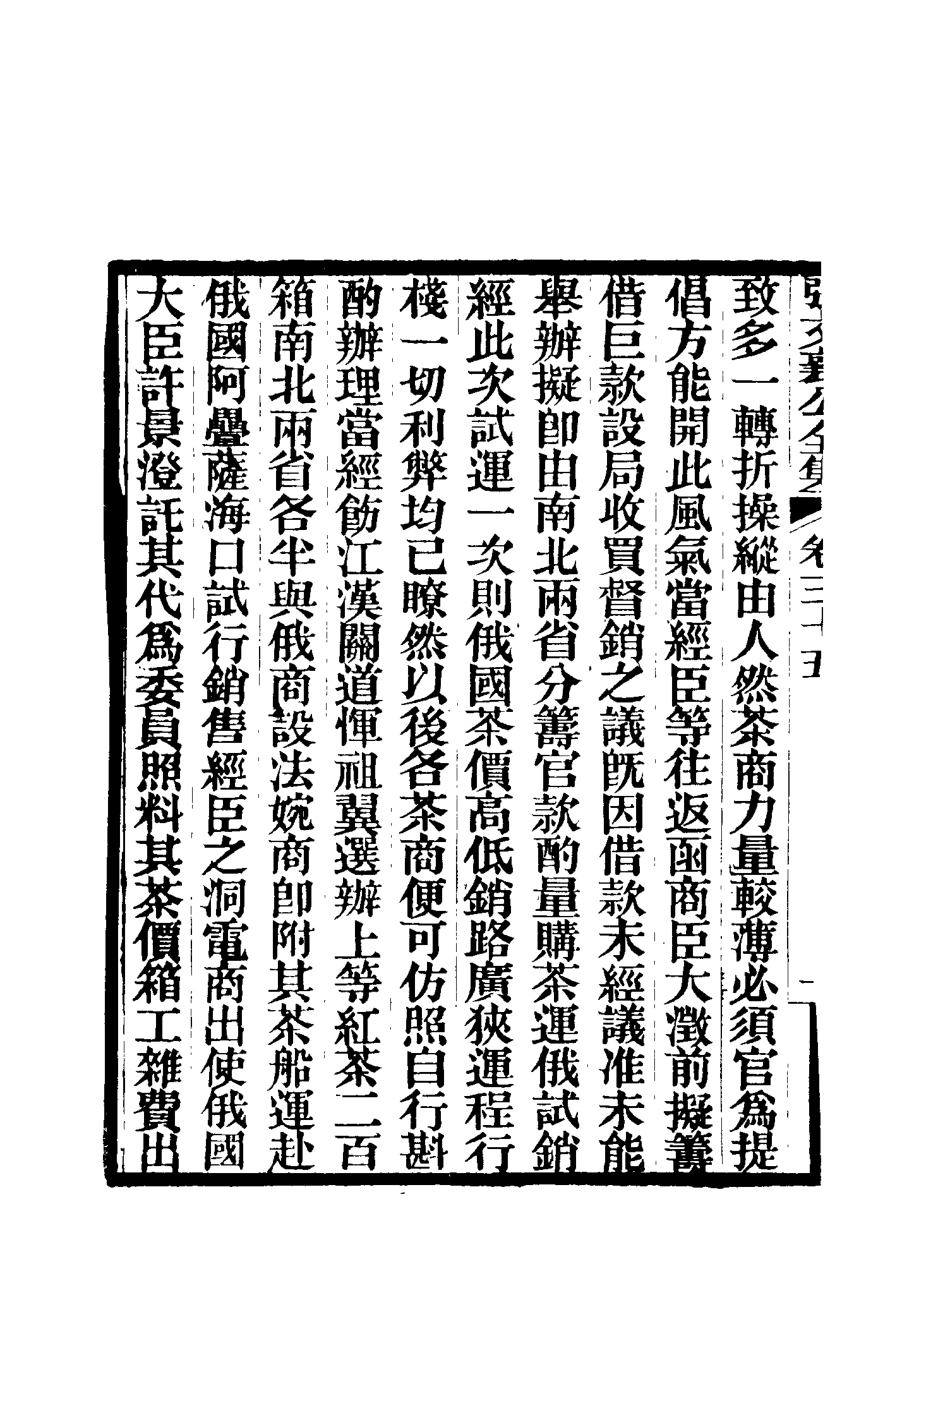 張文襄公全集 卷三十五 二
致多一轉折操縱由人然茶商力量較薄必須官爲提
倡方能開此風氣當經臣等往返函商臣大澂前擬籌
借巨款設局收買督銷之議旣因借款未經議准未能
舉辦擬卽由南北兩省分籌官款酌量購茶運俄試銷
經此次試運一次則俄國茶價高低銷路廣狹運程行
棧一切利弊均已瞭然以後各茶商便可仿照自行斟
酌辦理當經飭江漢關道惲祖翼選辦上等紅茶二百
箱南北兩省各半與俄商設法婉商卽附其茶船運赴
俄國阿疊薩海口試行銷售經臣之洞電商出使俄國
大臣許景澄託其代爲委員照料其茶價箱工雜費出